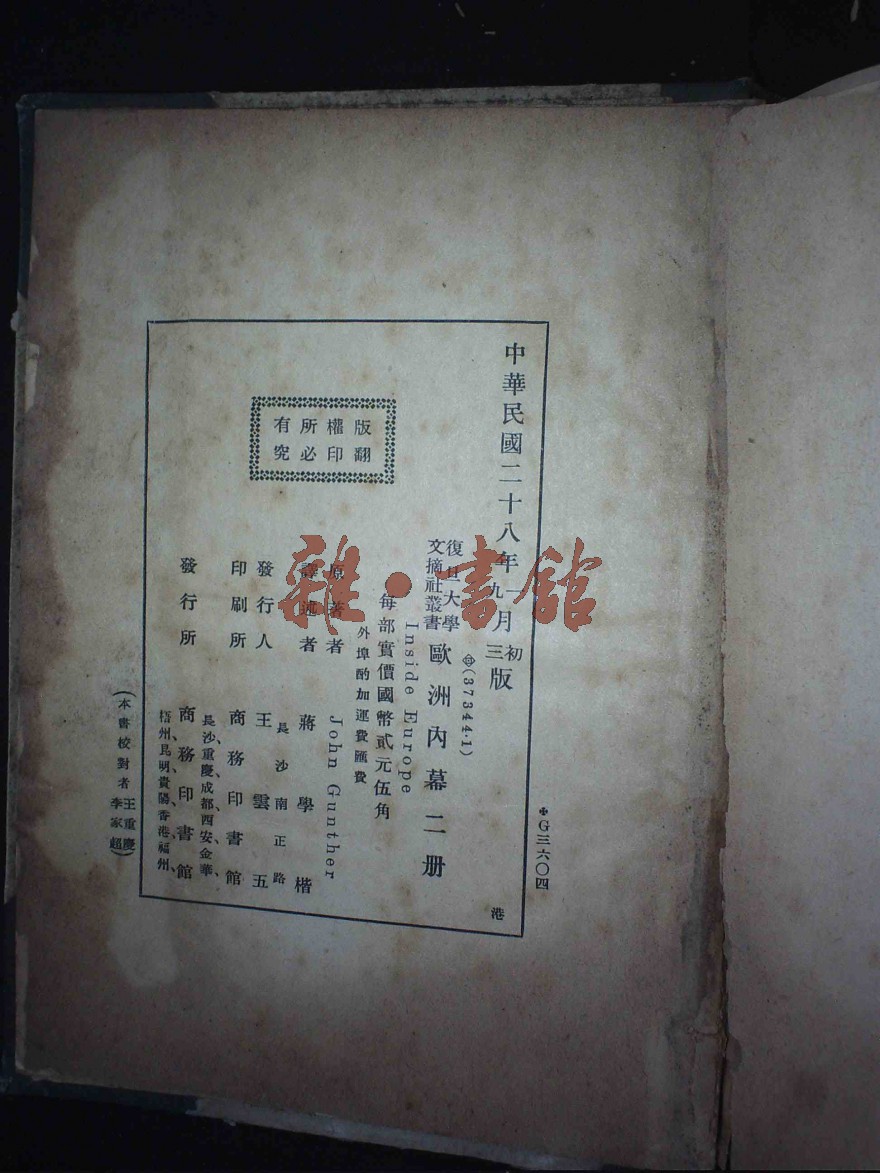 中華民國二十八年
一月初
九月三
版
(37344·1)
復旦大學
文摘社叢書
歐洲內幕二册
Inside Europe
每部實價國幣貳元伍角
外埠酌加運費匯費
原著者 John Gunther
譯述者 蔣學楷
長沙南正路
發行人 王雲五
印刷所 商務印書館
長沙、重慶、成都、西安、金華、
發行所 商務印書館
梧州、昆明、貴陽、香港、福州、
版權所有
翻印必究
(本書校對者王重慶
李家超)
G三六〇四
港
雜·書館